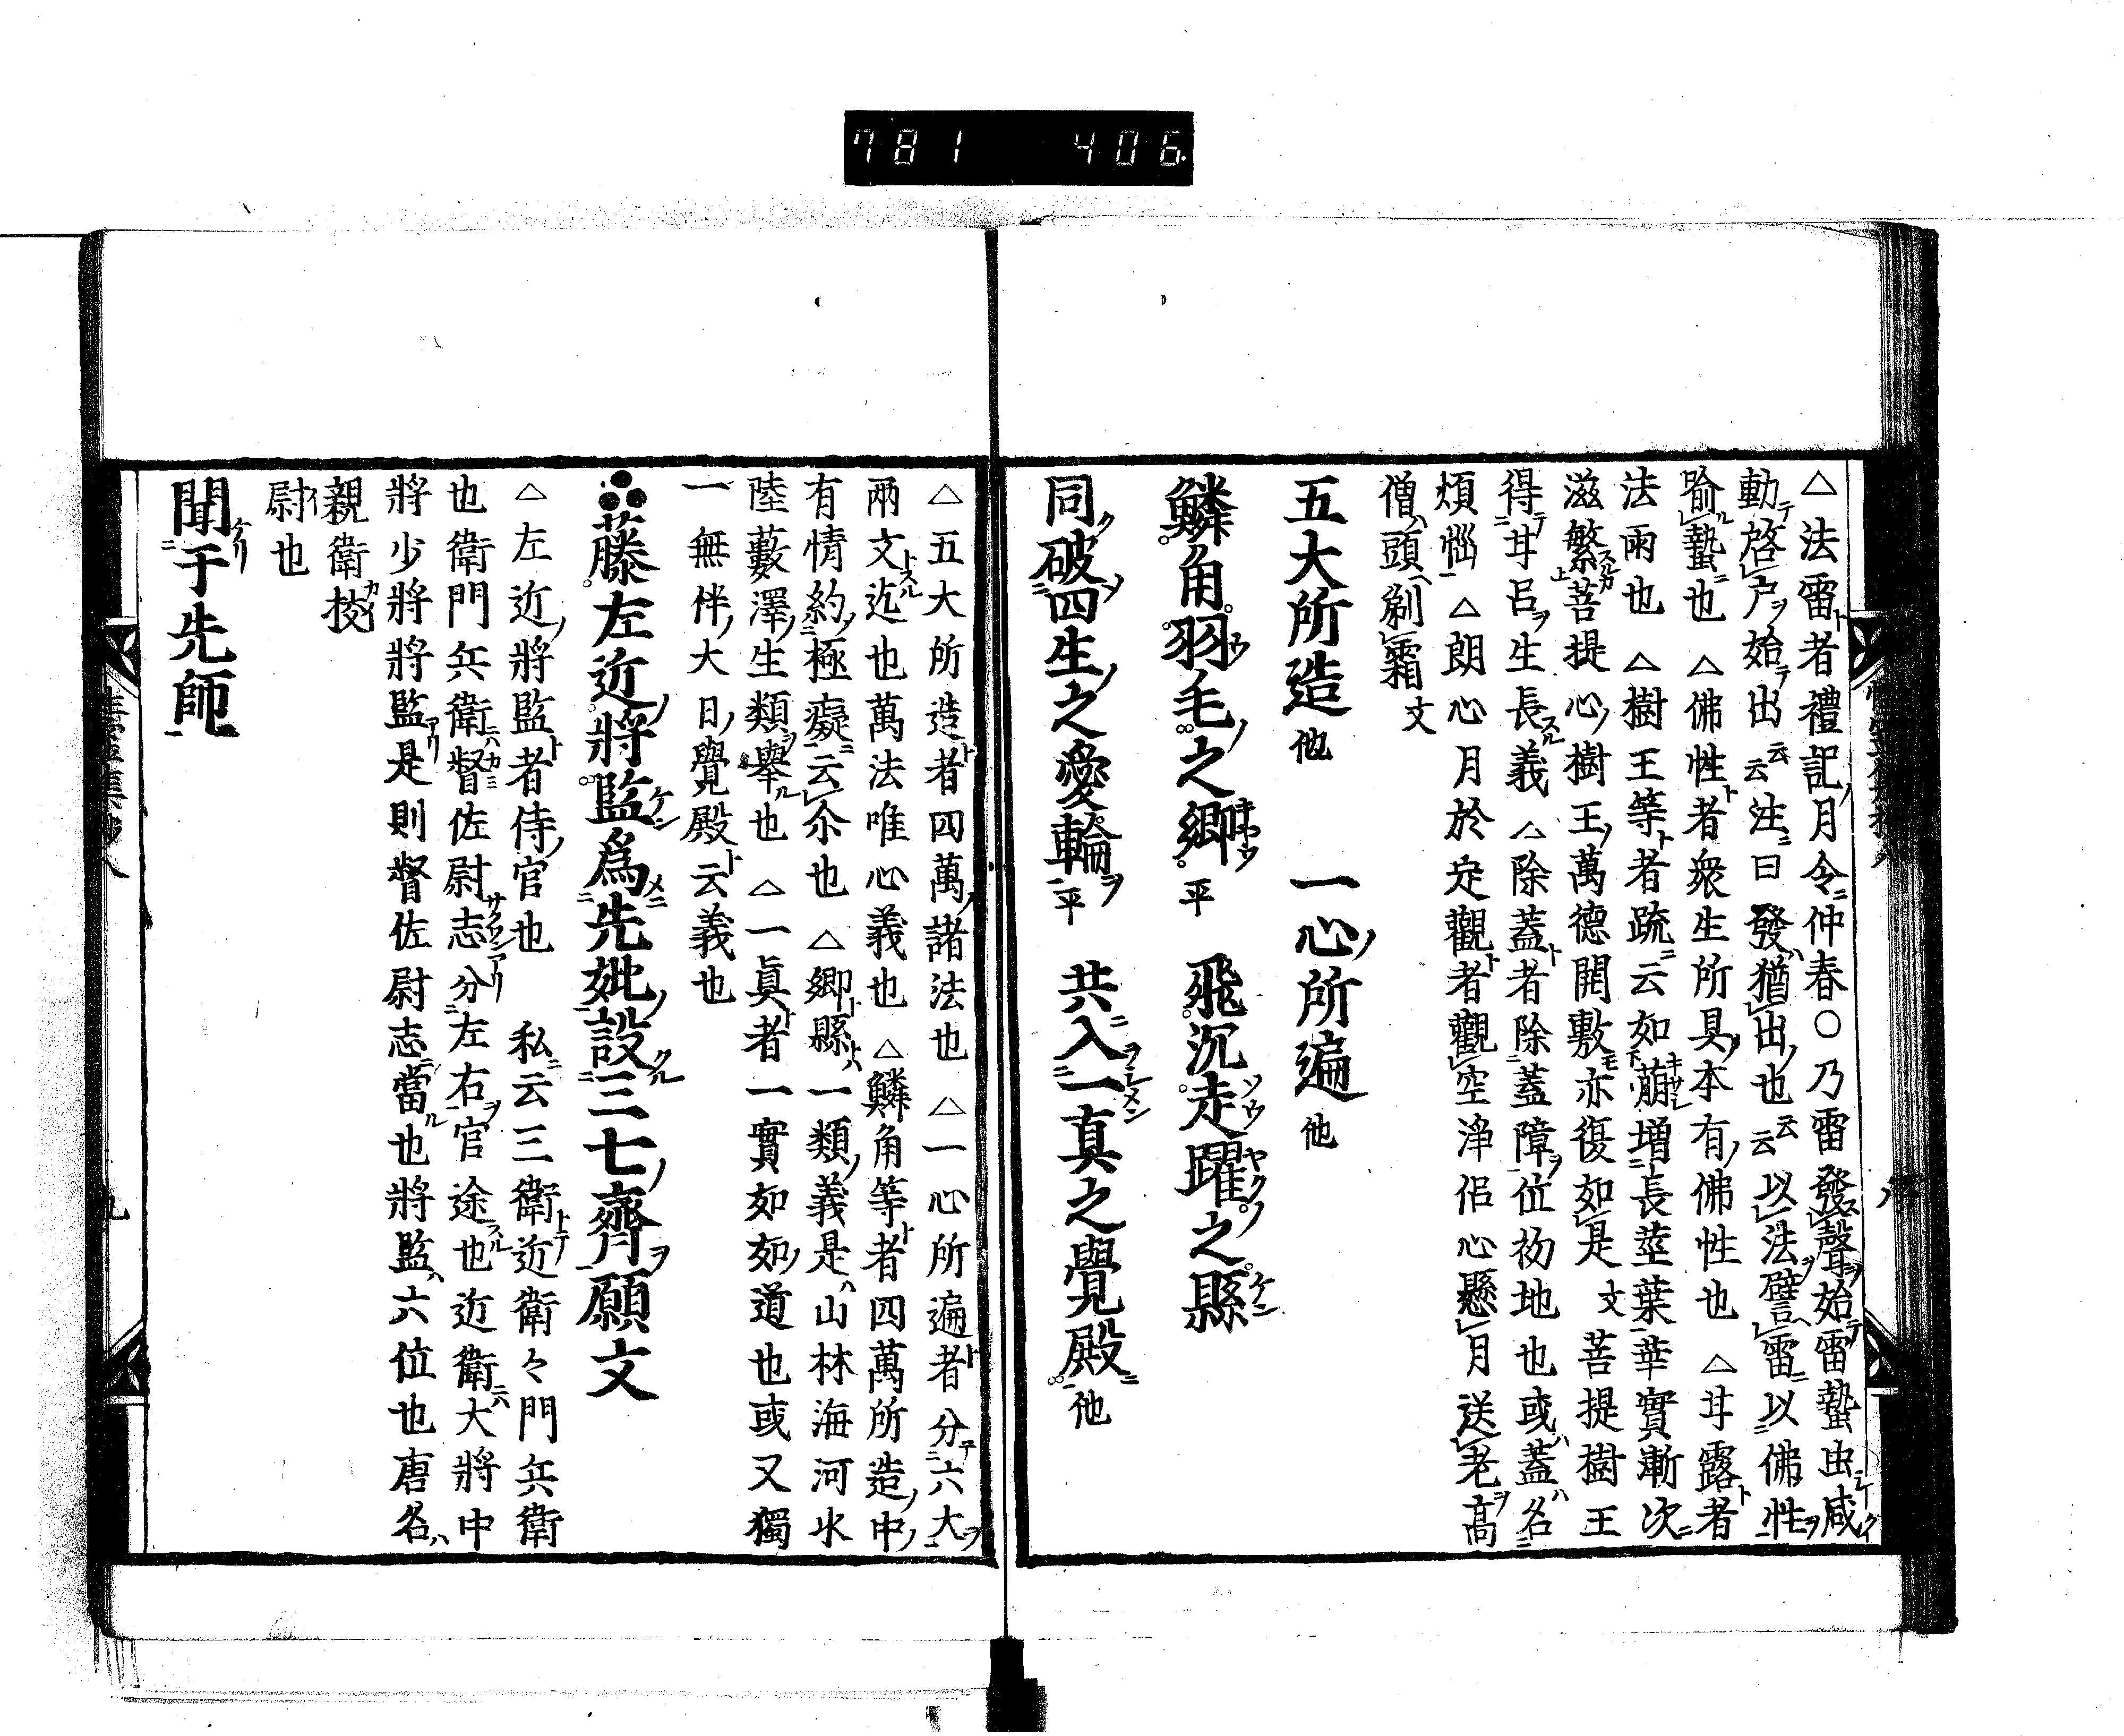 781 406
△法雷者禮記月令仲春〇乃雷發聲始雷蟄虫咸
動啓戶始出云云注曰發猶出也云云以法譬雷以佛性
喩蟄也△佛性者衆生所具本有佛性也△甘露者
法雨也△樹王等者疏云如萠增長莖葉華實漸次
滋繁菩提心樹王萬德開敷亦復如是文菩提樹王
得甘呂生長義△除蓋者除蓋障位初地也或蓋名
煩惱△朗心月於定觀者觀空淨侶心懸月送老高
僧頭剃霜文
五大所造他 一心所遍他
鱗角羽毛之鄉平 飛沉走躍之縣
同破四生之愛輪平 共入一真之覺殿他
△五大所造者四萬諸法也△一心所遍者分六大
兩文迄也萬法唯心義也△鱗角等者四萬所造中
有情約極癡云尒也△鄉縣一類義是山林海河水
陸藪澤生類舉也△一眞者一實如如道也或又獨
一無伴大日覺殿云義也
藤左近將監爲先妣設三七齋願文
△左近將監者侍官也 私云三衛近衛々門兵衛
也衛門兵衛督佐尉志分左右官途也近衛大將中
將少將將監是則督佐尉志當也將監六位也唐名
親衛校
尉也
聞于先師
九